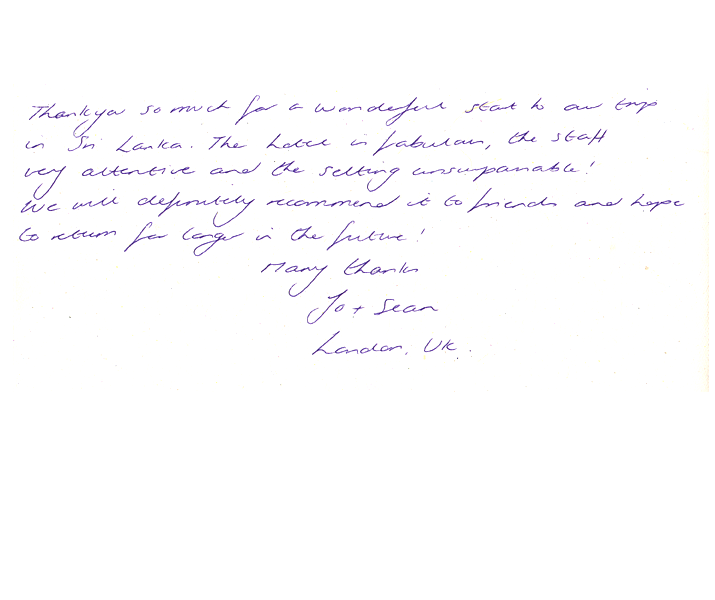 Thankyou so much for a wonderful start to our trip
in Sri Lanka. The hotel is fabulous, the staff
very attentive and the setting unsurpassable!
We will definitely recommend it to friends and hope
to return for longer in the future!
Many thanks
Jo + Sean
London, UK.